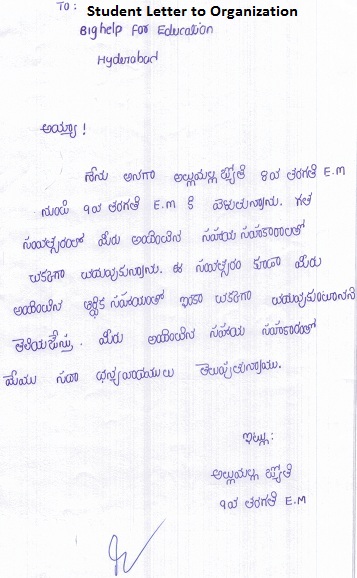 TO: Student Letter to Organization
Bighelp For Education
Hyderabad
అయ్యా!
నేను అనగా అల్లుయల్ల జ్యోతి 8వ తరగతి E.M
నుండి 9వ తరగతి E.M కి వెళుతున్నాను. గత
సంవత్సరంలో మీరు అందించిన సహాయ సహకారాలతో
చక్కగా చదువుకున్నాను. ఈ సంవత్సరం కూడా మీరు
అందించిన ఆర్థిక సహాయంతో ఇంకా చక్కగా చదువుకుంటానని
తెలియచేస్తూ. మీరు అందించిన సహాయ సహకారంతో
మేము సదా ధన్యవాదములు తెలుపుతున్నాము.
ఇట్లు:
అల్లుయల్ల జ్యోతి
9వ తరగతి E.M